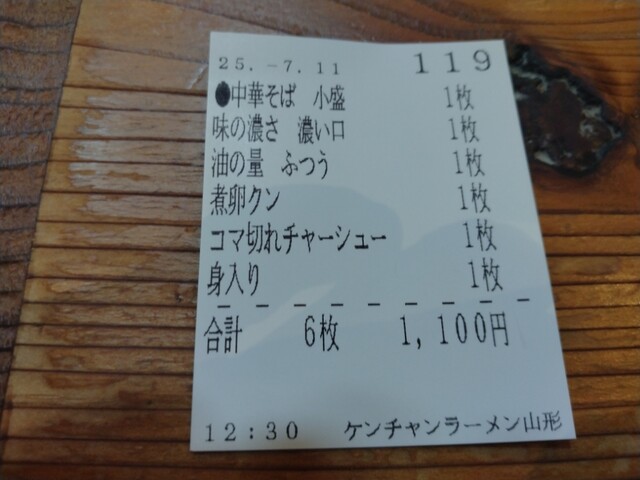 25.-7.11 119
●中華そば 小盛 1枚
味の濃さ 濃い口 1枚
油の量 ふつう 1枚
煮卵クン 1枚
コマ切れチャーシュー 1枚
身入り 1枚
合計 6枚 1,100円
12:30 ケンチャンラーメン山形